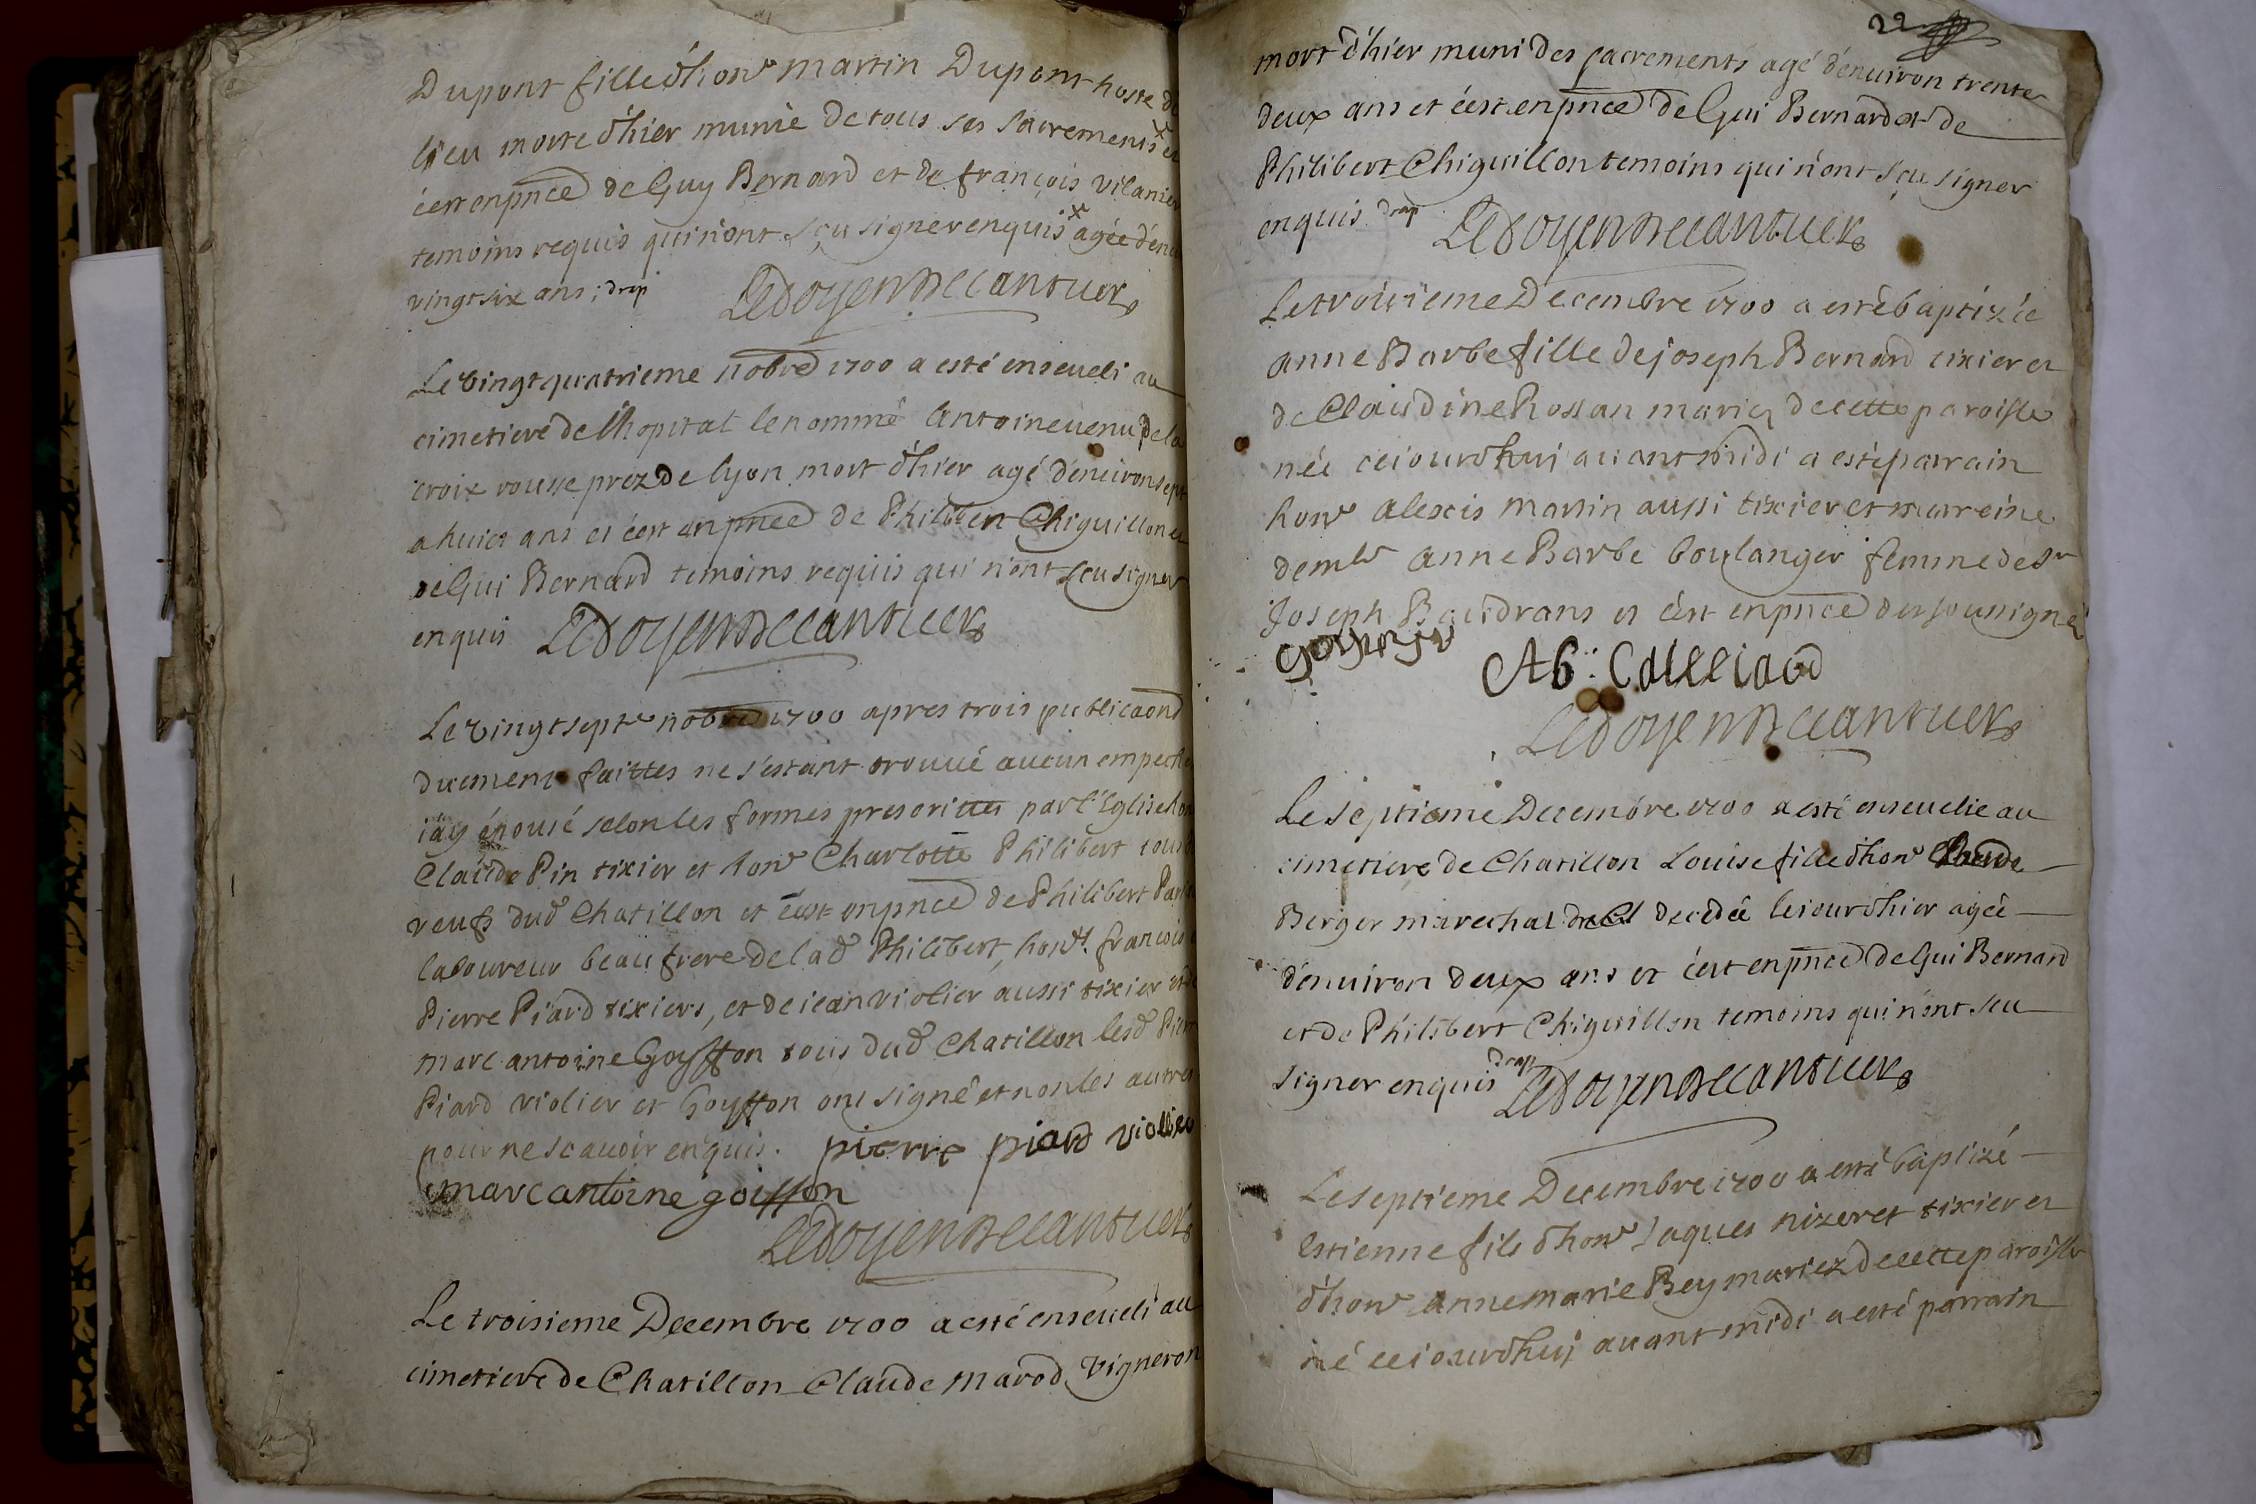 Dupont fille d'hon^e martin Dupont hoste de
lieu morte d'hier munie de tous ses sacremens x et
c'est en pnce de Guy Bernard et de françois vilanie
temoins requis qui n'ont sçu signer enquis x agée d'env
vingt six ans ; drap Ledoyen Decantuers
Le vingt quatrieme nobre 1700 a esté enseveli au
cimetiere de l'hopital le nommé Antoine venu de la
croix rousse prez de lyon mort d'hier agé d'environ sept
a huict ans et c'est en pnce de Philibert Chiguillon et
de Gui Bernard temoins requis qui n'ont sceu signer
enquis Ledoyen Decantuers
Le vingt sept^e nobre 1700 apres trois publicaons
duement faittes ne s'estant trouvé aucun empech
iay épousé selon les formes prescrittes par l'Eglise hon
Claude Pin tixier et hon^e Charlotte Philibert tous
veufs dud Chatillon et c'est en pnce de Philibert
laboureur beaufrere de lad Philibert, hon^t françois
Pierre Piard tixiers, et de iean violier aussi tixier et de
marc antoine Goyffon tous dud Chatillon lesd Pierre
Piard violier et Goyffon ont signé et non les autres
pour ne scavoir enquis. pierre piard viollier
marc antoine goiffon
Ledoyen Decantuers
Le troisieme Decembre 1700 a esté enseveli au
cimetiere de Chatillon Claude marod vigneron
22
mort d'hier muni des sacrements agé d'environ trente
deux ans et c'est en pnce de Gui Bernard et de
Philibert Chiguillon temoins qui n'ont sçu signer
enquis drap Ledoyen Decantuers
Le troisieme Decembre 1700 a esté baptizée
anne Barbe fille de joseph Bernard tixier et
de Claudine Rossan mariez de cette paroisse
née ceiourd'hui avant midi a esté parrain
hon^e alexis martin aussi tixier et marreine
dem^le anne Barbe boulanger femme de s^r
Joseph Baudrans et c'est en pnce des soussigné
Ab : Calliaud
Ledoyen Decantuers
Le septieme Decembre 1700 a esté ensevelie au
cimetiere de Chatillon Louise fille d'hon^e Claude
Berger marechal decedée le iour d'hier agée
d'environ deux ans et c'est en pnce de Gui Bernard
et de Philibert Chiguillon temoins qui n'ont sçu
signer enquis drap Ledoyen Decantuers
Le septieme Decembre 1700 a esté baptizé
Estienne fils d'hon^e Jaques nizeret tixier et
d'hon^e anne marie Bey mariez de cette paroisse
né ceiourd'hui avant midi a esté parrain